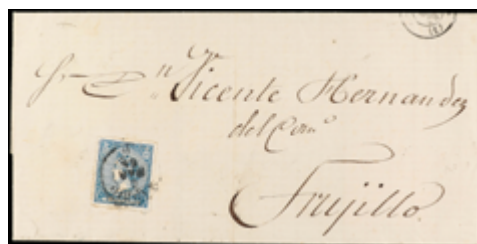 Sr. Dn Vicente Hernandez
del Como
Trujillo.